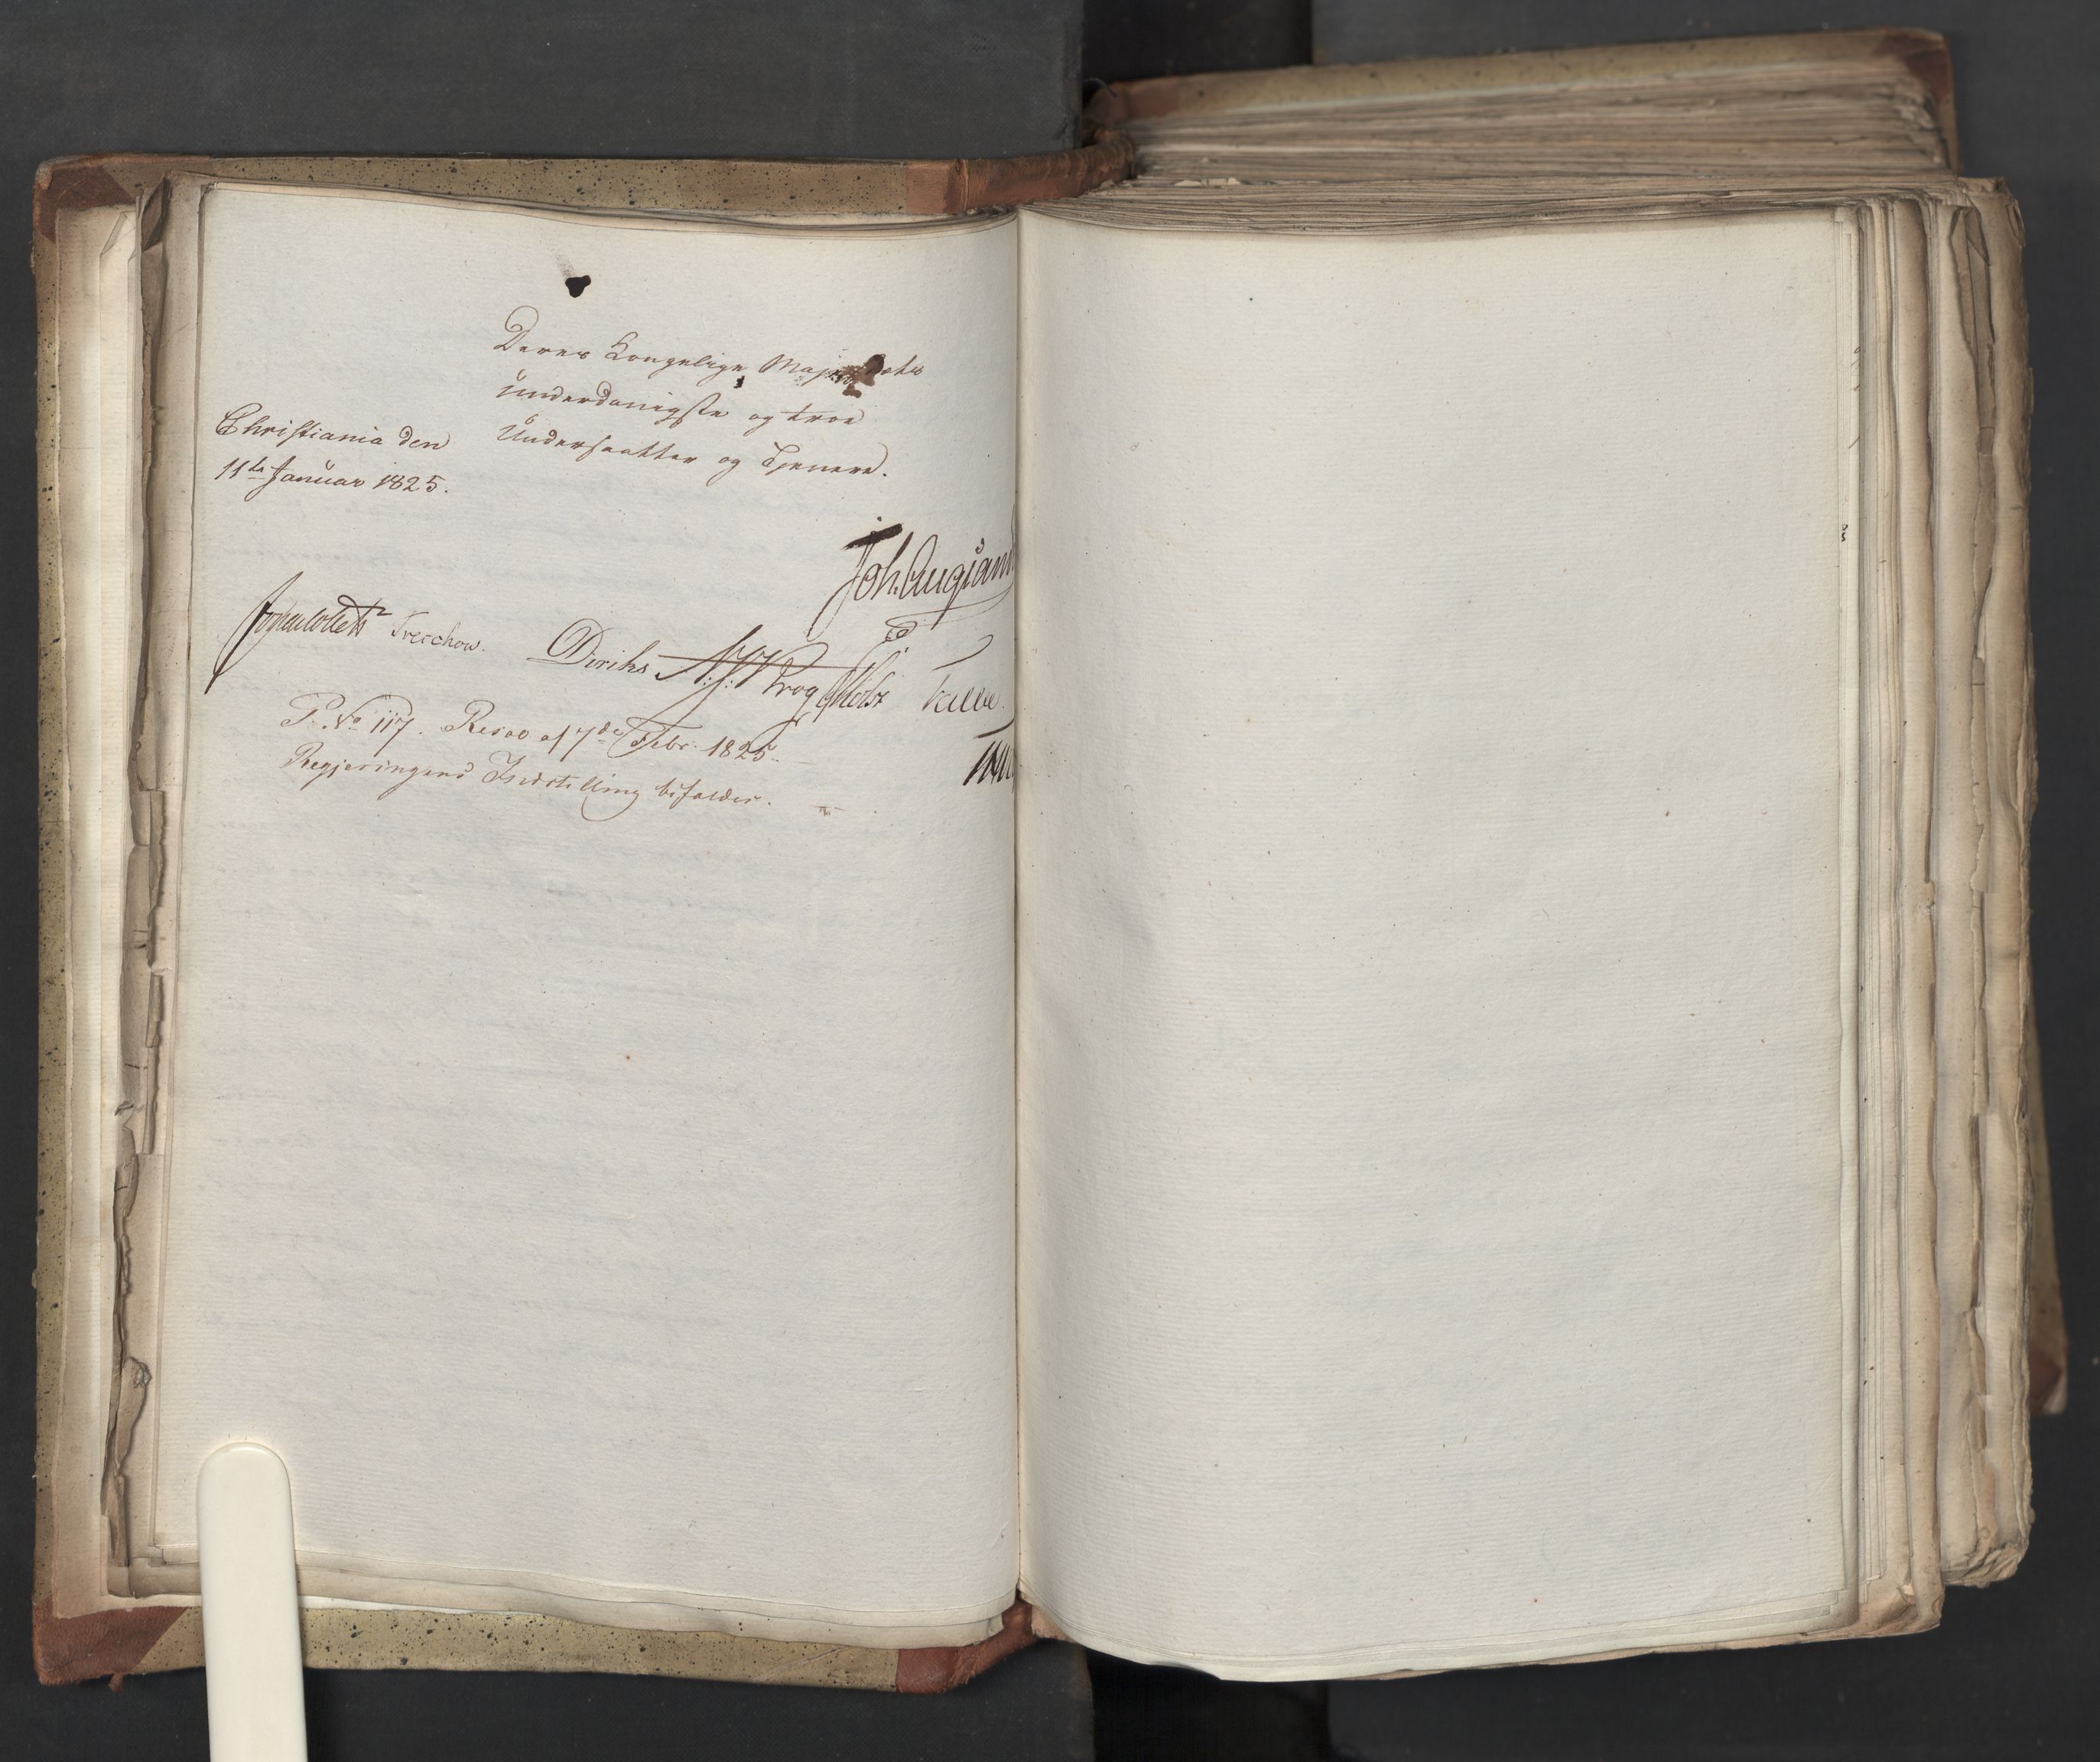 Deres Kongelige Majestæts
underdanigste og troe
Undersaatter og Tjenere.
Christiania den
11te Januar 1825.
Joh. Aug. Sand
Jonas Collett Treschow. Diriks N: J: Krog Holst Falbe.
P. No 117. Resol. af 7de Febr. 1825.
Regjeringens Indstilling bifaldes.